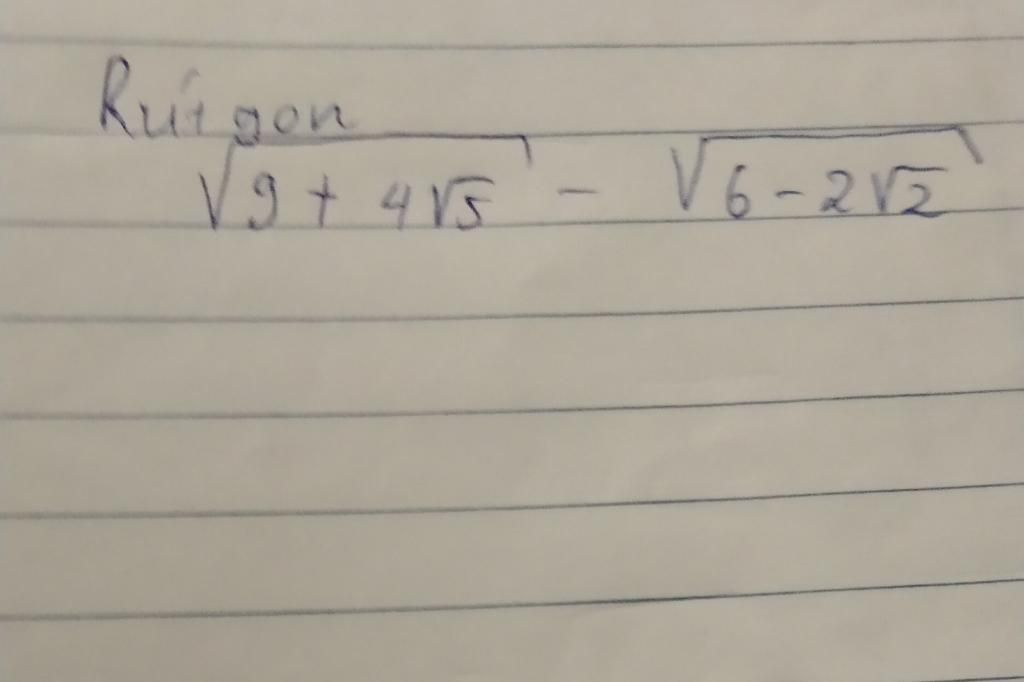 Rút gọn
√(9 + 4√5) - √(6 - 2√2)